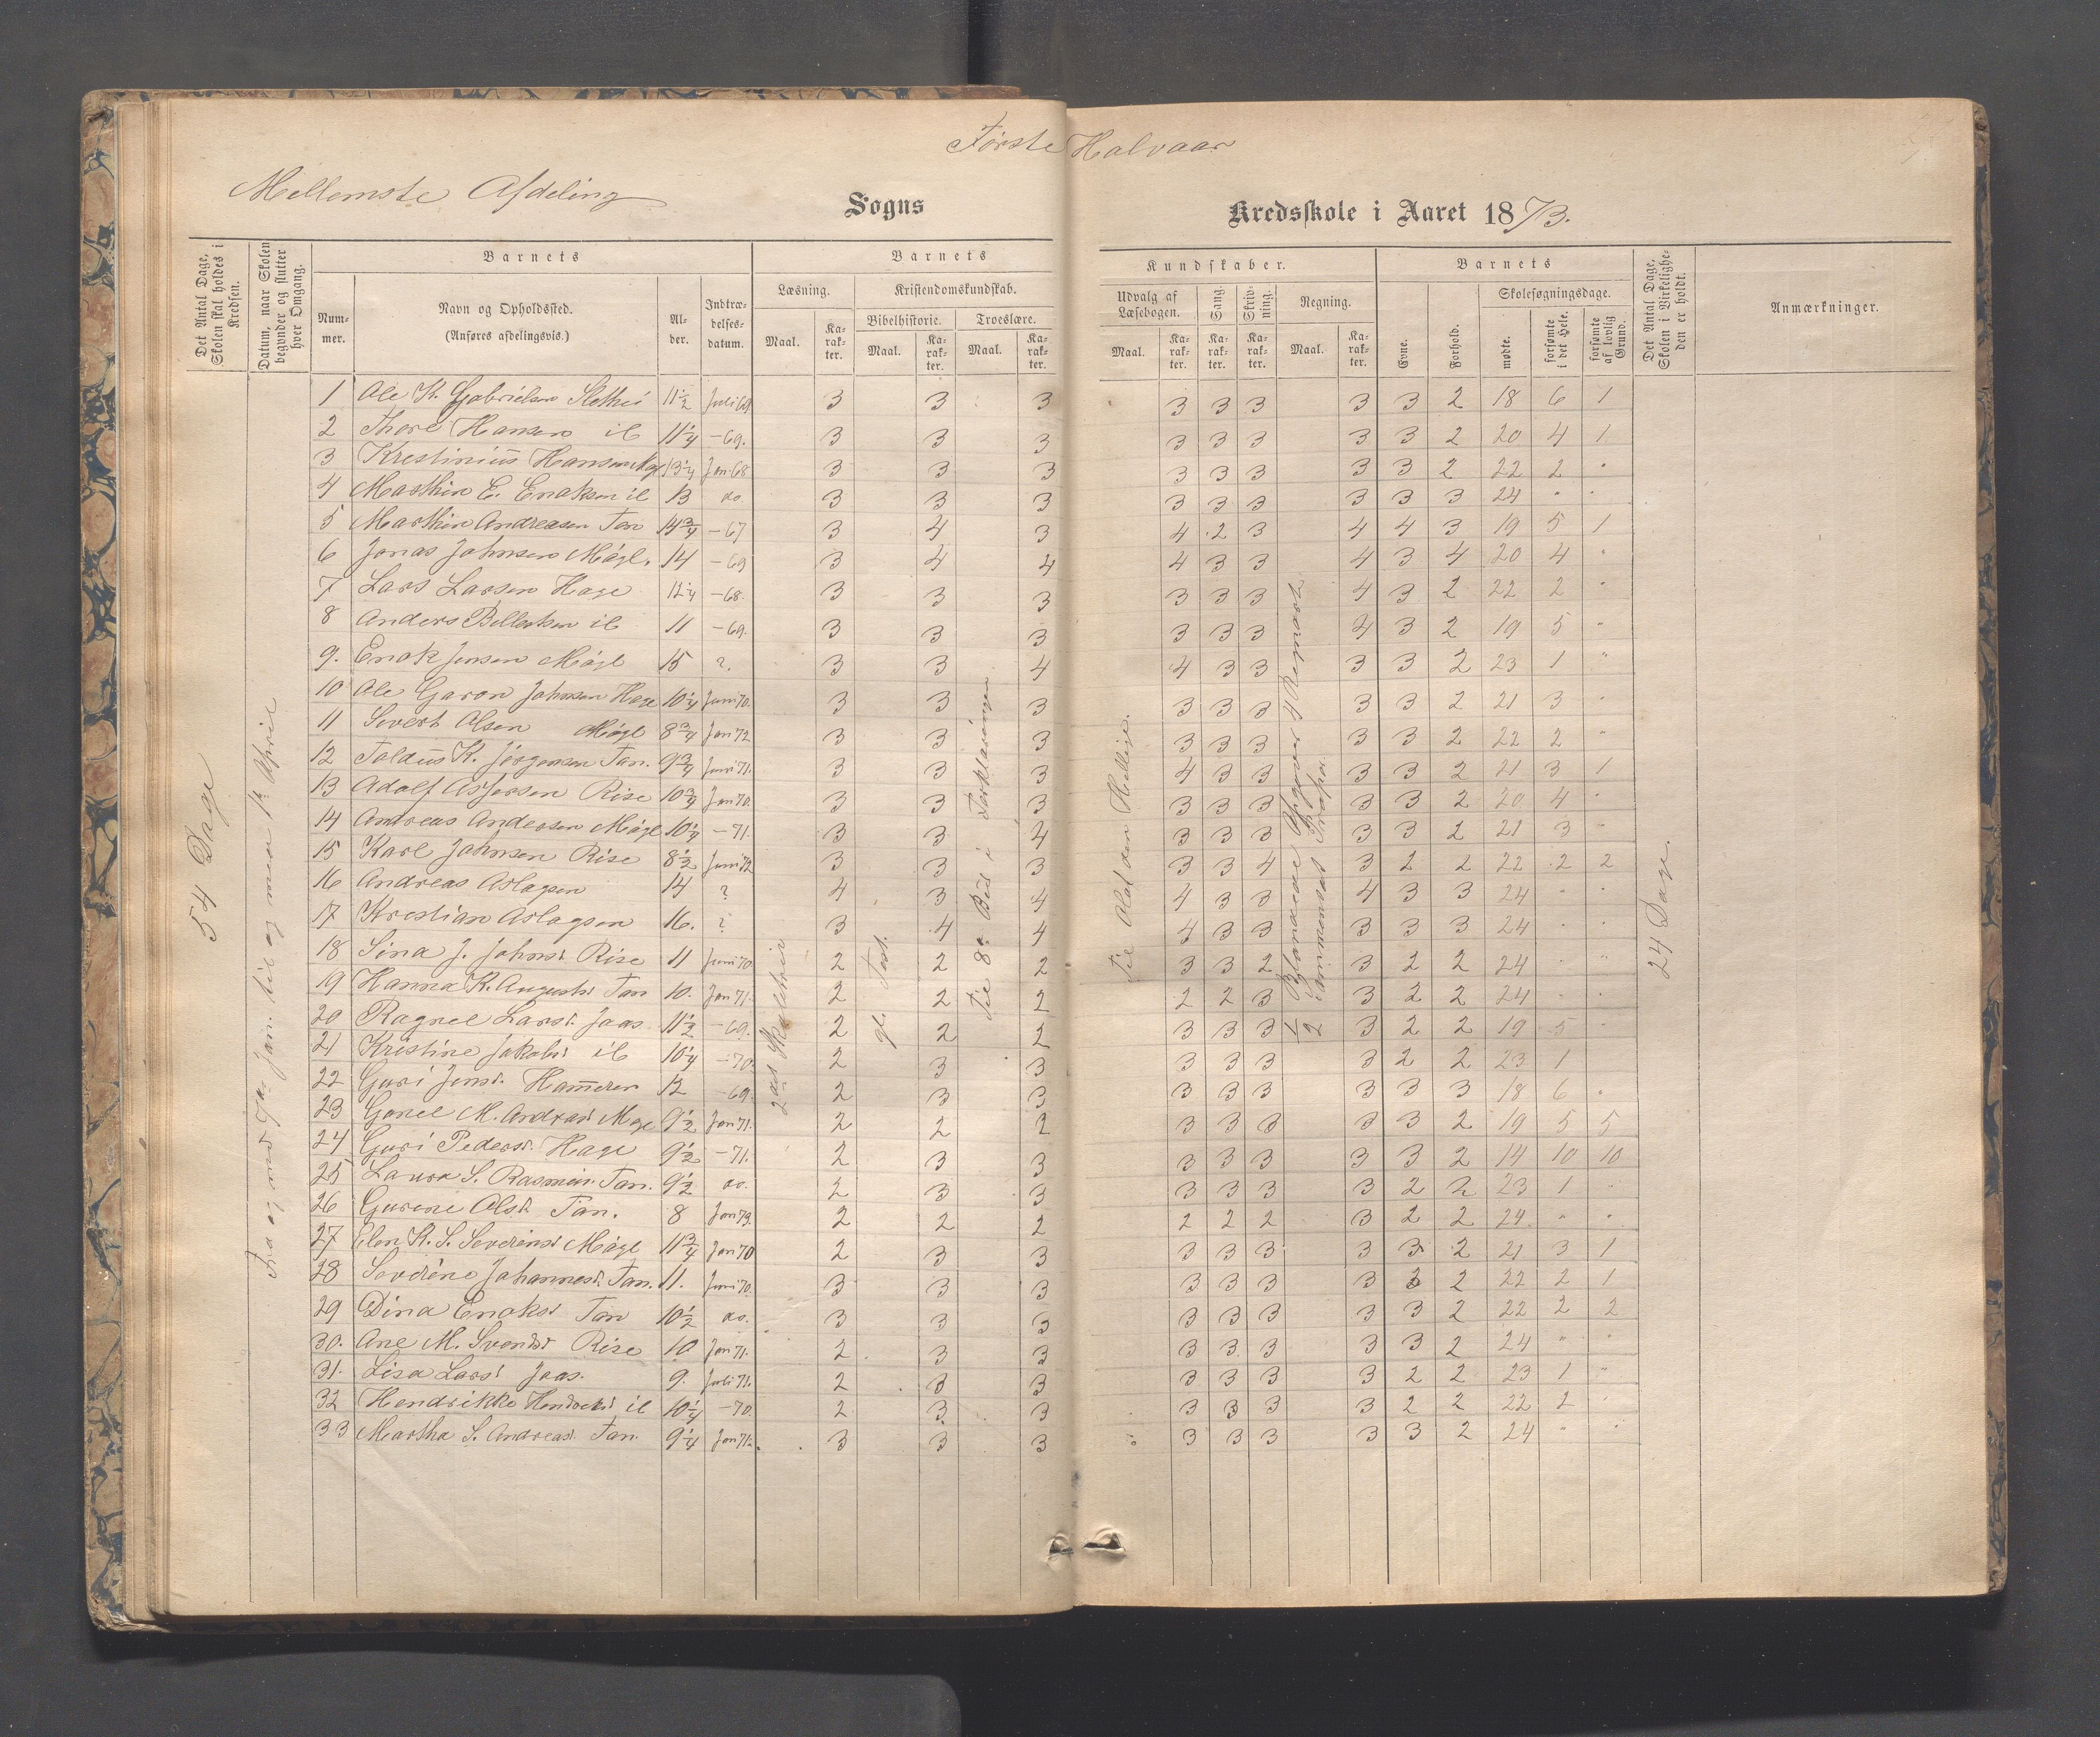 Første Halvaar
Mellemste Afdeling
Sogns Kredsskole i Aaret 1873.
Det Antal Dage, Skolen skal holdes i Kredsen.
Datum, naar Skolen begynder og slutter hver Omgang.
Barnets
Nummer.
Navn og Opholdssted.
(Anføres afdelingsvis.)
Alder.
Indtrædelsesdatum.
Barnets
Læsning.
Kristendomskundskab.
Bibelhistorie.
Troeslære.
Maal.
Karakter.
Maal.
Karakter.
Maal.
Karakter.
Kundskaber.
Udvalg af Læsebogen.
Sang.
Skrivning.
Regning.
Maal.
Karakter.
Karakter.
Karakter.
Maal.
Karakter.
Barnets
Evne.
Forhold.
Skolesøgningsdage.
mødte.
forsømte i det Hele.
forsømte af lovlig Grund.
Det Antal Dage, Skolen i Virkeligheden er holdt.
Anmærkninger.
54 Dage
Jan. til og med 1ste April
gl. Test.
Til 8de Bud i Forklaringen
Til Olaf den Hellige.
Blandede Opgaver 4 Regnearter
24 Dage.
1 Ole K. Gabrielsen 11 1/2 Juli 69 3 3 3 3 3 3 3 3 2 18 6 1
2 Thore Hansen ib 11 1/4 -69. 3 3 3 3 3 3 3 3 2 20 4 1
3 Krestinius Hansen 13 1/4 Jan 68 3 3 3 3 3 3 3 3 2 22 2 "
4 Marthin E. Enoksen ib 13 do. 3 3 3 3 3 3 3 3 3 24 " "
5 Marthin Andreasen Tan 14 3/4 -67 3 4 3 4 2 3 4 4 3 19 5 1
6 Jonas Johnsen Mögl. 14 -69 3 4 4 4 3 3 4 3 4 20 4 "
7 Lars Larsen Hage 12 1/4 -68. 3 3 3 3 3 3 4 3 2 22 2 "
8 Anders ib 11 -69. 3 3 3 3 3 3 4 3 2 19 5 "
9. Enok Jensen Mögl 15 ?. 3 3 4 4 3 3 3 3 2 23 1 "
10 Ole Garon Johnsen Hage 10 1/4 Juni 70. 3 3 3 3 3 3 3 3 2 21 3 "
11 Sivert Olsen Mögl 8 3/4 Jan 72 3 3 3 3 3 3 3 3 2 22 2 "
12 K. Jörgensen Tan. 9 3/4 Juni 71. 3 3 3 4 3 3 3 3 2 21 3 1
13 Adolf Asjersen Rise 10 3/4 Jan 70. 3 3 3 3 3 3 3 3 2 20 4 "
14 Andreas Andersen Mögl 10 1/4 -71. 3 3 4 3 3 3 3 3 2 21 3 "
15 Karl Johnsen Rise 8 1/2 Juni 72 3 3 3 3 3 4 3 2 2 22 2 2
16 Andreas Aslagsen 14 ? 4 3 4 4 3 3 4 3 3 24 " "
17 Krestian Aslagsen 16. ? 3 4 4 4 3 3 3 3 3 24 " "
18 Sina J. Johnsd. Rise 11 Juni 70 2 2 2 3 3 2 3 2 2 24 " "
19 Hanna K. Augustsd. Tan 10. Jan 71. 2 2 2 2 2 3 3 2 2 24 " "
20 Ragnel Larsd. Jaas. 11 1/2 -69. 2 2 2 3 3 3 3 2 2 19 5 "
21 Kristine Jakobsd. ib 10 1/4 -70. 2 3 3 3 3 3 3 2 2 23 1
22 Guri Jensd. Hameren 12 -69. 2 3 3 3 3 3 3 3 3 18 6 "
23 Gonel M. Andreasd 9 1/2 Jan 71. 2 2 2 3 3 3 3 3 2 19 5 5
24 Guri Pedersd. Hage 9 1/2 -71. 2 3 3 3 3 3 3 3 2 14 10 10
25 Laura S. Rasmusd. Tan. 9 1/2 do. 2 3 3 3 3 3 3 2 2 23 1 "
26 Gurine Olsd. Tan. 8 Jan 73. 2 2 2 2 2 2 3 2 2 24 " "
27 Elen K. S. Severinsd Mögl 11 3/4 Jan 70 2 3 3 3 3 3 3 3 2 21 3 1
28 Severine Johannesd. Tan. 11. Juni 70. 3 3 3 3 3 3 3 3 2 22 2 1
29 Dina Enoksd Tan 10 1/2 do. 3 3 3 3 3 3 3 3 2 22 2 2
30. Ane M. Svendsd Rise 10 Jan 71. 2 3 3 3 3 3 3 3 2 24 " "
31. Lisa Larsd Jaas. 9. Juli 71. 2 3 3 3 3 3 3 2 2 23 1 "
32 Hendrikke Hendriksd ib 10 1/4 -70. 2 3 3 3 3 3 3 2 2 22 2 "
33 Martha S. Andreasd. Tan. 9 1/4 Jan 71. 3 3 3 3 3 3 3 3 2 24 " "